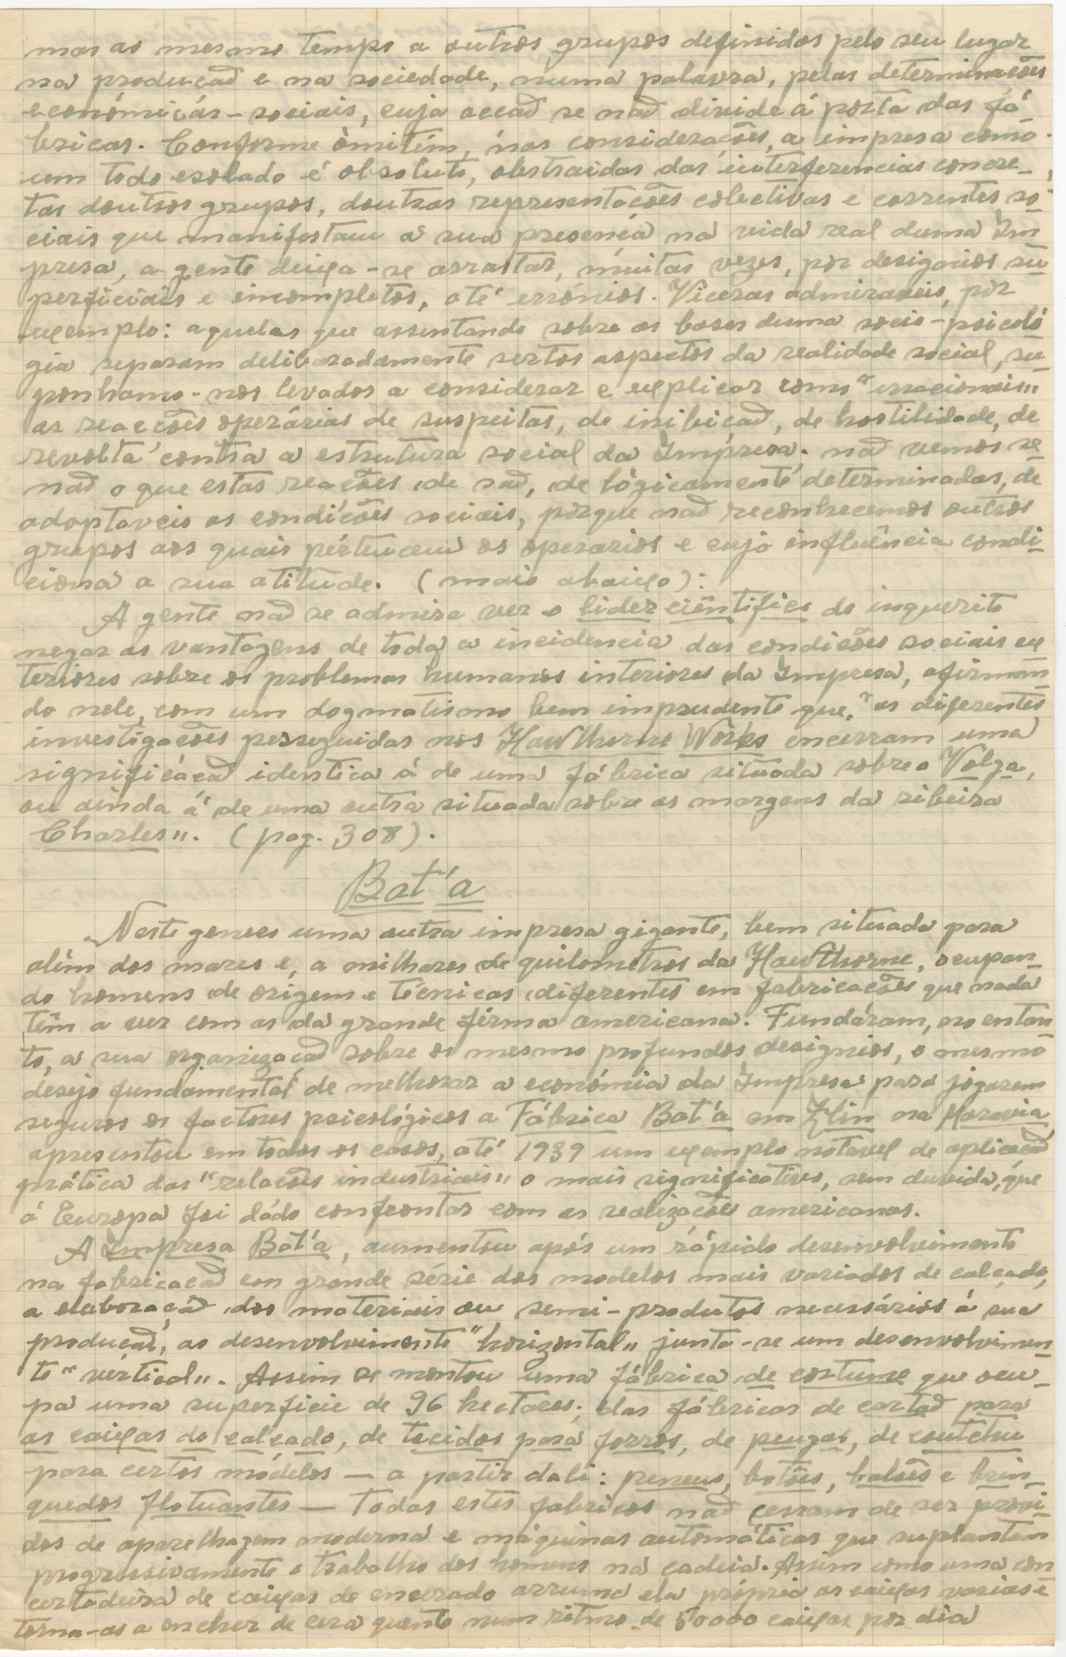 mas ao mesmo tempo a outros grupos definidos pelo seu lugar
na produçaõ e na sociedade, numa palavra, pelas determinações
económicas-sociais, cuja acçaõ se naõ divide á porta das fá
bricas. Conforme omitim, nas considerações, a impresa como
um todo esolado é absoluto, abstraidas das interferencias concre_
tas doutros grupos, doutras representações colectivas e correntes so
ciais que manifestam a sua presença na vida real duma Im
presa, a gente deiça-se arrastar, muitas vezes, por designios su
perficiais e imcompletos, até errónios. Viceras admiraveis, por
exemplo: aquelas que assentando sobre as bases duma socio-psicoló
gia separam deliberadamente sertos aspectos da realidade social, su
ponhamo-nos levados a considerar e explicar como "irracionais"
as reacções operárias de suspeitas, de inibiçaõ, de hostilidade, de
revolta contra a estrutura social da Impresa. naõ vemos se
naõ o que estas reacções de saõ, de lógicamente determinadas, de
adoptaveis as condições sociais, porque naõ reconhecemos outros
grupos aos quais pertencem os operarios e cuja influência condi-
ciona a sua atitude. (mais abaiço):
A gente naõ se admira ver o lider ciêntifico do inquerito
negar as vantagens de toda a incidencia das condições sociais ex
teriores sobre os problemas humanos interiores da Impresa, afirman_
do nele, com um dogmatismo bem imprudente que, "as diferentes
investigações perseguidas nos Hawthorne Works encerram uma
significáçaõ identica á de uma fábrica situada sobre o Volga,
ou ainda á de uma outra situada sobre as margens da ribeira
Charles". (pag. 308).
Bat'a
Neste genero uma outra impresa gigante, bem situada para
além dos mares e, a milhares de quilometros da Hawthorne, ocupan_
do homens de origem e técnicas diferentes em fabricações que nada
têm a ver com as da grande firma americana. Fundáram, no entan
to, a sua organizaçaõ sobre os mesmo profundos designios, o mesmo
desejo fundamental de melhorar a económia da Impresa para jogarem
seguros os factores psicológicos a Fábrica Bat'a em Zlin na Moravia
apresentou em todos os casos, até 1939 um exemplo notavel de aplicaçaõ
prática das "relações industriais" o mais significativo, sem duvida, que
á Europa foi dádo confrontar com as realizações americanas.
A Impresa Bat'a, aumentou após um rápido desenvolvimento
na fabricaçaõ em grande série dos modelos mais variados de calçado,
a elaboraçaõ dos materiais ou semi-produtos necessários á sua
produçaõ, ao desenvolvimento "horizontal" junta-se um desenvolvimen_
to "vértical". Assim se montou uma fábrica de costume que ocu_
pa uma superficie de 96 hectares; das fábricas de cartaõ para
as caiças do calçado, de tecidos para forros, de peugas, de coutchu
para certos módelos — a partir dali: peneus, botões, balões e brin_
quedos flotuantes — Todas estes fabricos naõ cessam de ser provi_
dos de aparelhagem moderna e máquinas automáticas que suplantam
progressivamente o trabalho dos homens na cadeia. Assim como uma con
certadeira de caiças de encerado arruma ela própria as caiças vasias e
torna-as a encher de cera quente num ritmo de 50000 caiças por dia